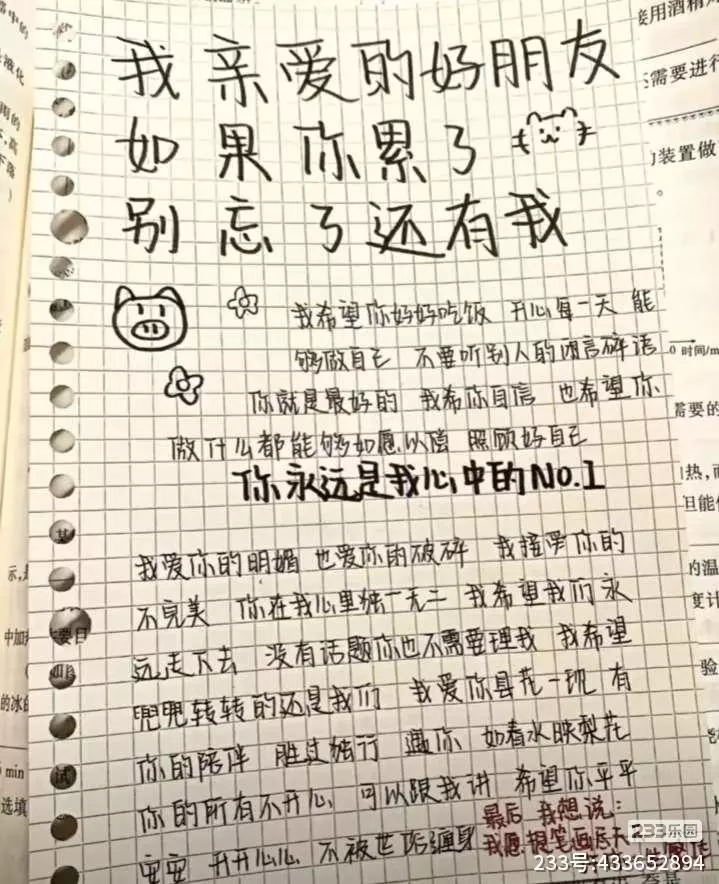 我亲爱的好朋友
如果你累了
别忘了还有我
我希望你好好吃饭 开心每一天 能
够做自己 不要听别人的闲言碎语
你就是最好的 我希你自信 也希望你
做什么都能够如愿以偿 照顾好自己
你永远是我心中的NO.1
我爱你的明媚 也爱你的破碎 我接受你的
不完美 你在我心里独一无二 我希望我们永
远走下去 没有话题你也不需要理我 我希望
兜兜转转的还是我们 我爱你昙花一现 有
你的陪伴 胜过独行 遇你 如春水映梨花
你的所有不开心 可以跟我讲 希望你平平
安安 开开心心 不被世俗缠身
最后 我想说:
我愿提笔画
接用酒精
需要进行
装置做
。
0 时间/m
需要的
热,
且能
的温
度计
验
中加
要目
的冰
min
选填
试
233乐园
233号:433652894